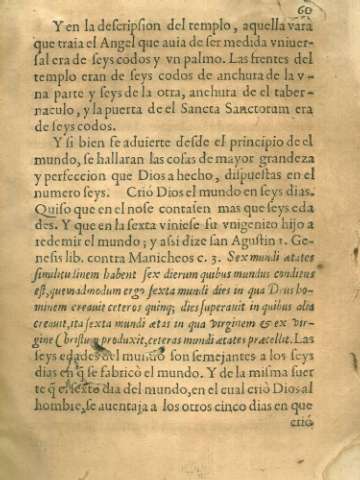 60
Y en la descripsion del templo, aquella vara
que traia el Angel que auia de ser medida vniuer-
sal era de seys codos y vn palmo. Las frentes del
templo eran de seys codos de anchura de la v-
na parte y seys de la otra, anchura de el taber-
naculo, y la puerta de el Sancta Sanctorum era
de seys codos.
Y si bien se aduierte desde el principio de el
mundo, se hallaran las cosas de mayor grandeza
y perfeccion que Dios a hecho, dispuestas en el
numero seys. Crió Dios el mundo en seys dias.
Quiso que en el no se contasen mas que seys eda
des. Y que en la sexta viniese su vnigenito hijo a
redemir el mundo; y asi dize san Agustin 1. Ge-
nesis lib. contra Manicheos c. 3. Sex mundi ætates
similitudinem habent sex dierum quibus mundus conditus
est, quemadmodum ergo sexta mundi dies in qua Deus ho-
minem creauit ceteros quinq; dies superauit in quibus alia
creauit, ita sexta mundi ætas in qua Virginem & ex Vir-
gine Christum produxit, ceteras mundi ætates præcellit. Las
seys edades del mundo son semejantes a los seys
dias en q̃ se fabricò el mundo. Y de la misma suer
te q̃ en sexto dia del mundo, en el cual crió Dios al
hombre, se auentaja a los otros cinco dias en que
crió